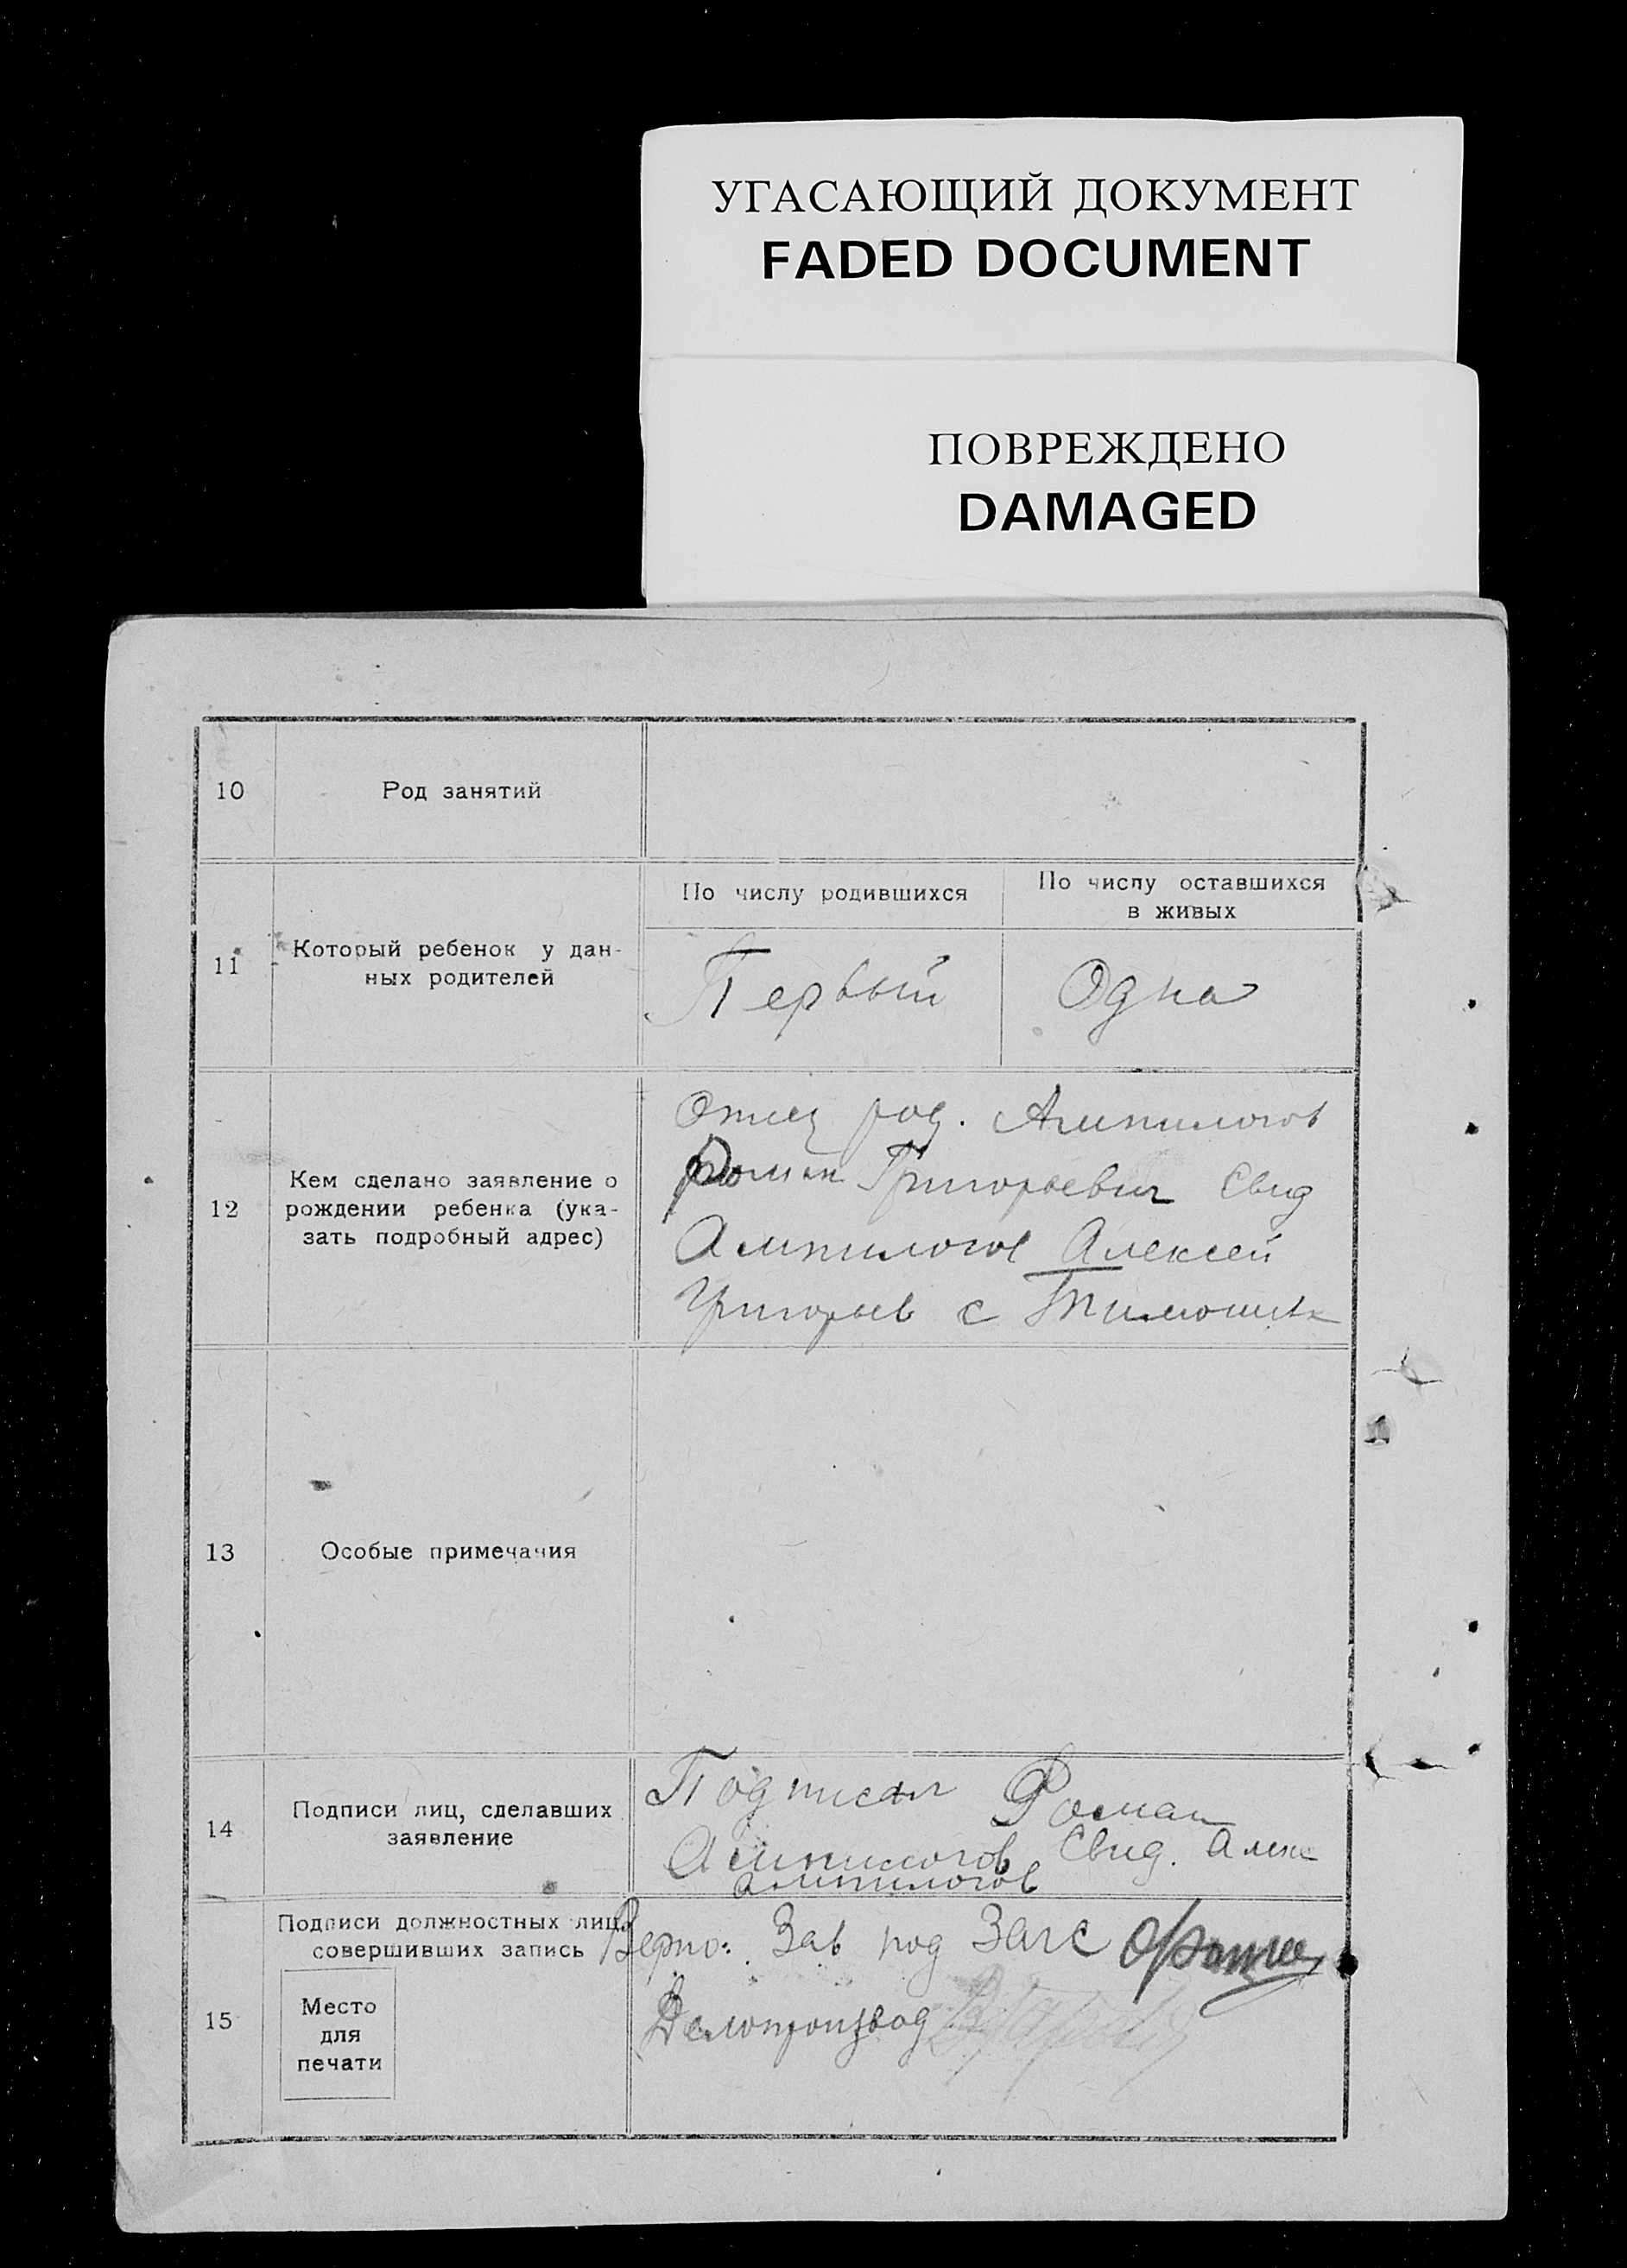 УГАСАЮЩИЙ ДОКУМЕНТ
FADED DOCUMENT
ПОВРЕЖДЕНО
DAMAGED
10
Род занятий
11
Который ребенок у дан-
ных родителей
По числу родившихся
По числу оставшихся
в живых
Первый
Одна
12
Кем сделано заявление о
рождении ребенка (ука-
зать подробный адрес)
Отец род. Ампилогов
Роман Григорьевич Свид
Ампилогов Алексей
Григорьев с
13
Особые примечания
14
Подписи лиц, сделавших
заявление
Подписал Роман
Ампилогов Свид. Алекс
Ампилогов
15
Подписи должностных лиц,
совершивших запись
Место
для
печати
Верно: Зав под Загс
Делопроизвод